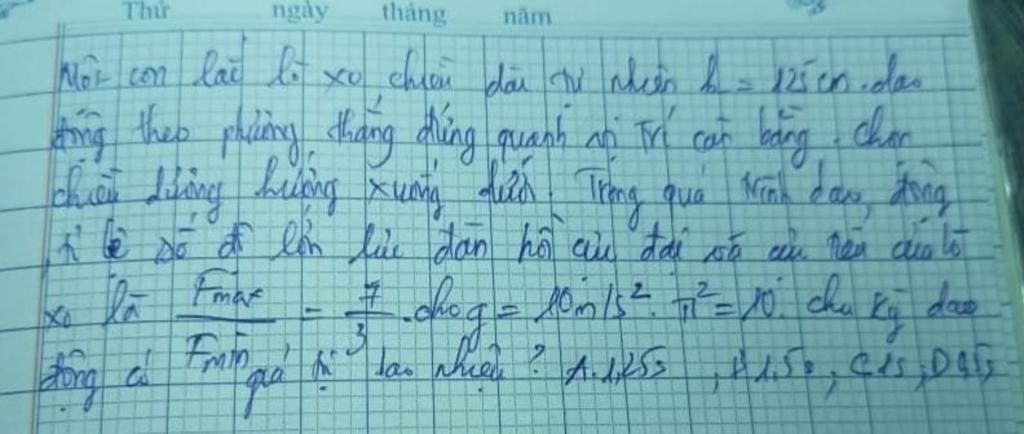 Thứ ngày tháng năm
Một con lắc lò xo, chiều dài tự nhiên l = 125 cm. dao
động theo phương thẳng đứng quanh vị trí cân bằng. chọn
chiều dương hướng xuống dưới. Trong quá trình dao động
tỉ lệ số độ lớn lực đàn hồi cực đại và cực tiểu của lò
xo là Fmax/Fmin = 7/3. cho g = 10 m/s². π² = 10. chu kỳ dao
động có giá trị bao nhiêu? A. 1,25s, B 1,5s, C 1s, D 0,5s